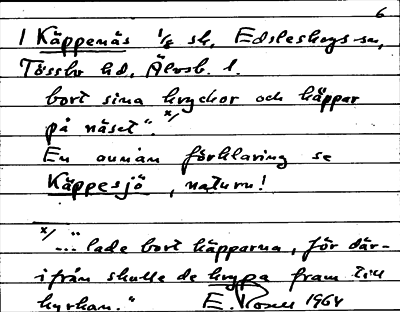 6
1 Käppenäs 1/8 sk, Edsleskogs sn,
Tössbo hd, Älvsb. l.
bort sina kryckor och käppar
på näset". x/
En annan förklaring se
Käppesjö, naturn!
x/ "... lade bort käpparna, för där-
ifrån skulle de krypa fram till
kyrkan." E. Rosell 1964